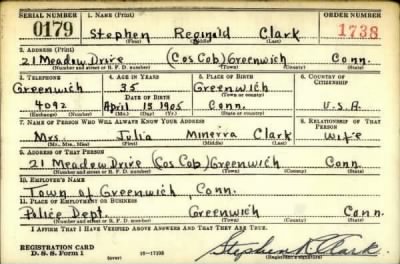 SERIAL NUMBER 1. NAME (Print) ORDER NUMBER
0179 Stephen Reginald Clark 1738
(First) (Middle) (Last)
2. ADDRESS (Print)
21 Meadow Drive (Cos Cob) Greenwich Conn.
(Number and street or R. F. D. number) (Town) (County) (State)
3. TELEPHONE 4. AGE IN YEARS 5. PLACE OF BIRTH 6. COUNTRY OF CITIZENSHIP
Greenwich 35 Greenwich
(Exchange) DATE OF BIRTH (Town or county)
4092 April 15 1905 Conn. U.S.A.
(Number) (Mo.) (Day) (Yr.) (State or country)
7. NAME OF PERSON WHO WILL ALWAYS KNOW YOUR ADDRESS 8. RELATIONSHIP OF THAT PERSON
Mrs. Julia Minerva Clark Wife
(Mr., Mrs., Miss) (First) (Middle) (Last)
9. ADDRESS OF THAT PERSON
21 Meadow Drive (Cos Cob) Greenwich Conn.
(Number and street or R. F. D. number) (Town) (County) (State)
10. EMPLOYER'S NAME
Town of Greenwich, Conn.
11. PLACE OF EMPLOYMENT OR BUSINESS
Police Dept. Greenwich Conn.
(Number and street or R. F. D. number) (Town) (County) (State)
I AFFIRM THAT I HAVE VERIFIED ABOVE ANSWERS AND THAT THEY ARE TRUE.
REGISTRATION CARD
D. S. S. Form 1 (over) 16-17105 Stephen R. Clark.
(Registrant's signature)